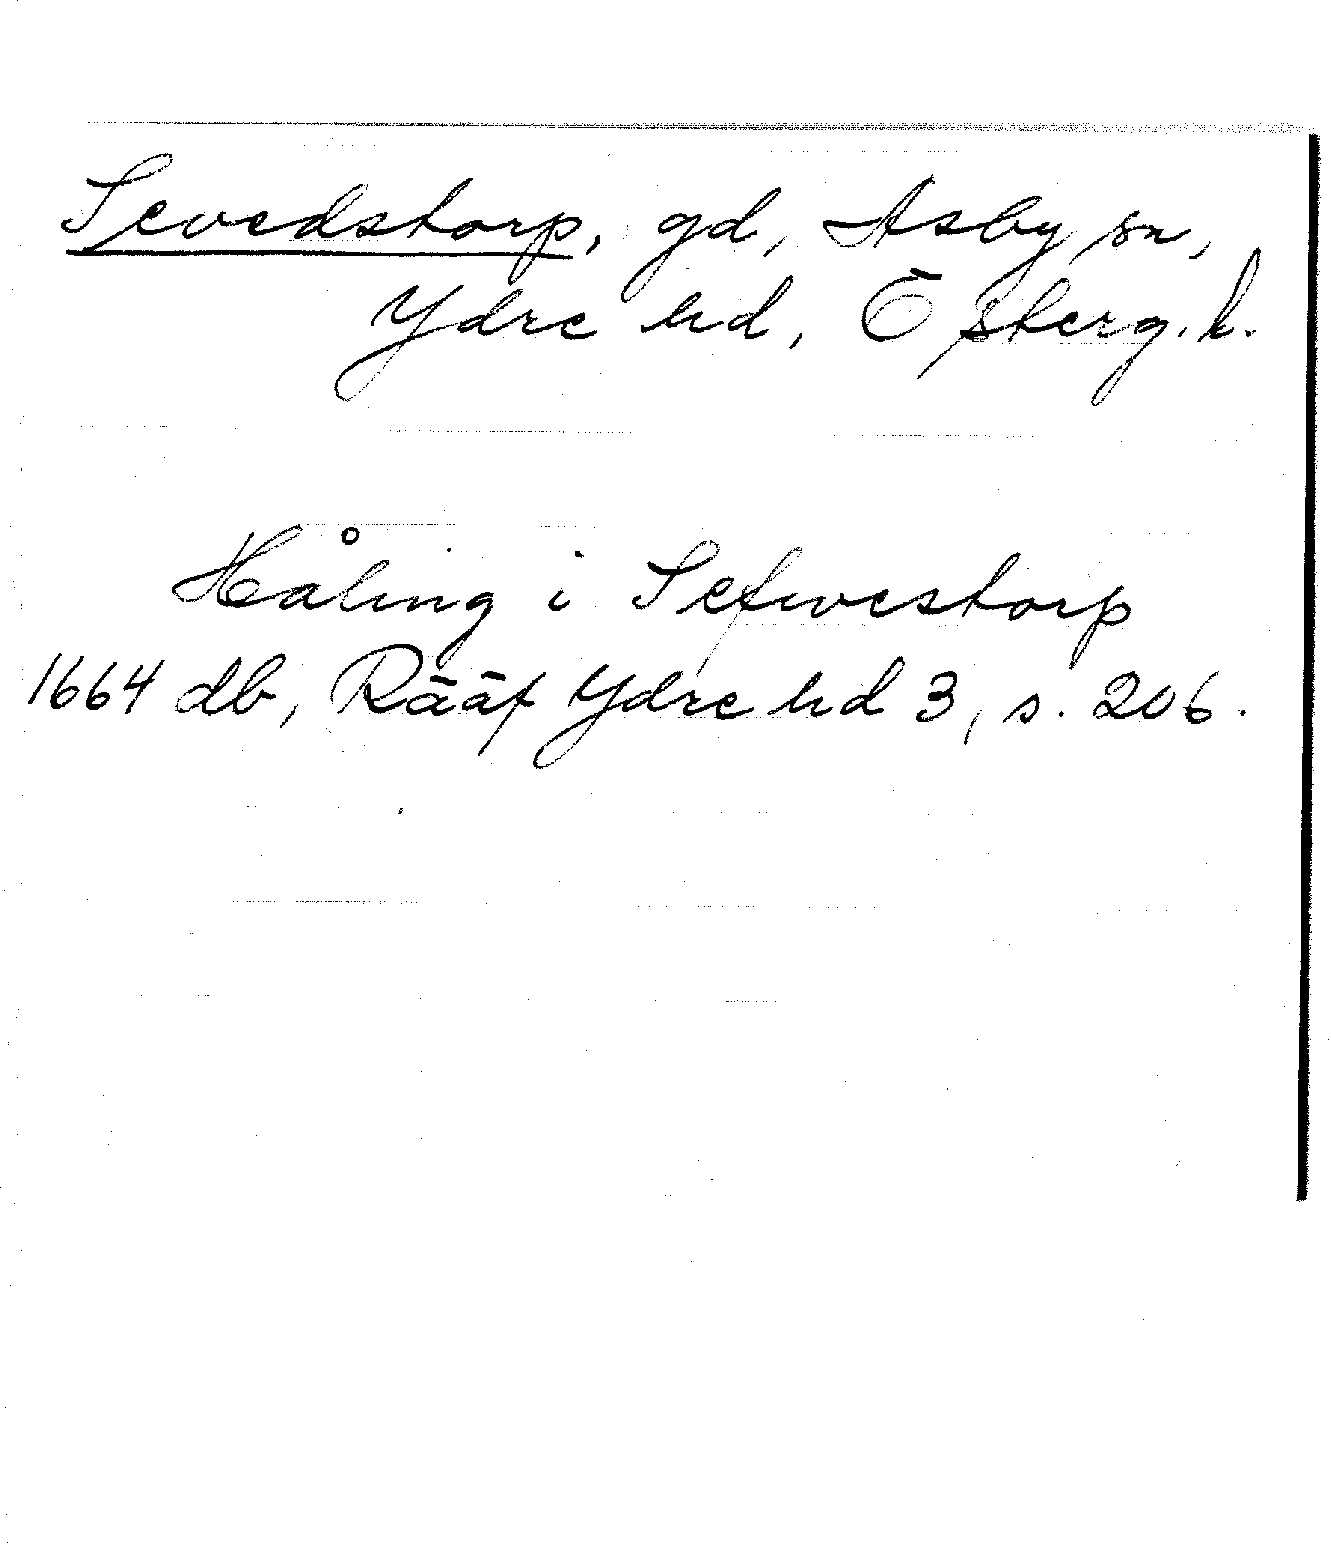 Sevedstorp, gd, Asby sn,
Ydre hd, Österg. l.
Håling i Sefwestorp
1664 db, Rääf Ydre hd 3, s. 206.